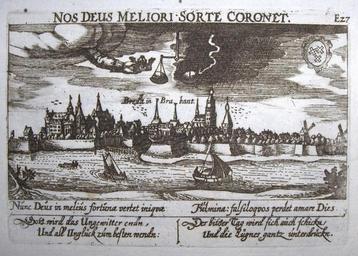 NOS DEUS MELIORI SORTE CORONET.
E27
Breda in Bra bant.
Nunc Deus in melius fortuna vertet iniquæ
Fulmina: falsiloquos perdet amara Dies
Gott wird das Ungewitter endn
Und all Unglück zum besten wendn:
Der bitter Tag wird sich auch schicken
Und die Lügner gantz unterdrücken.